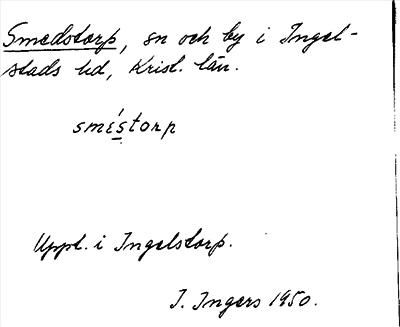 Smedstorp, sn och by i Ingel-
stads hd, Krist. län.
smi´storp
Uppt. i Ingelstorp.
I. Ingers 1950.